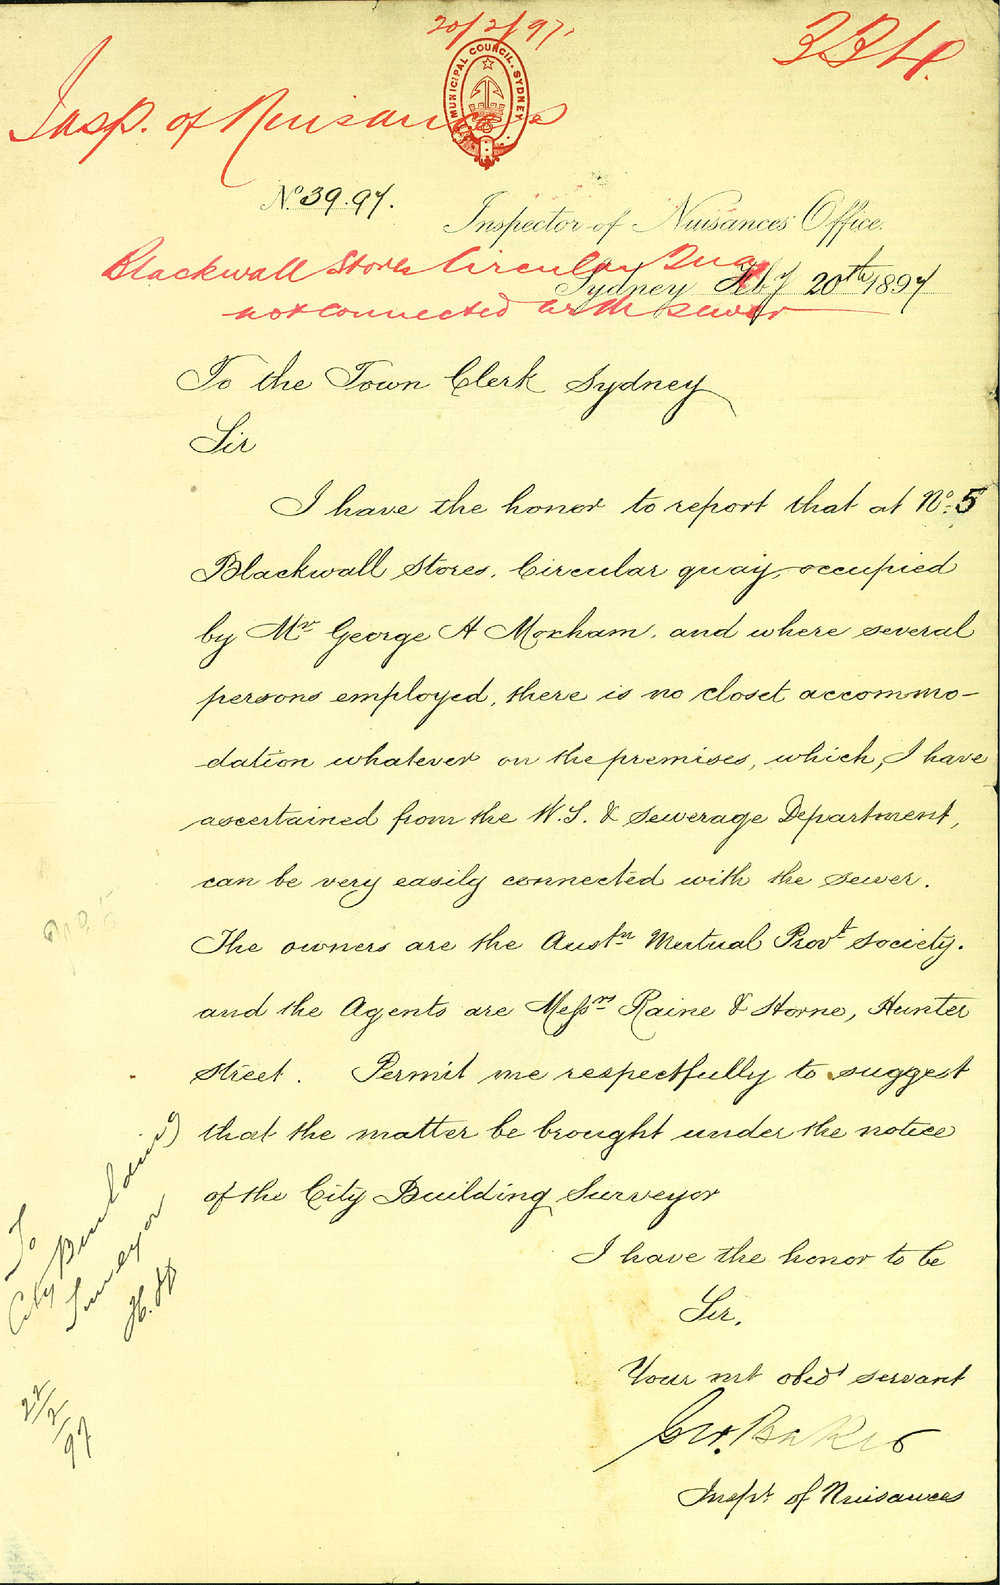 20/2/97.
334.
MUNICIPAL COUNCIL. SYDNEY
Insp. of Nuisances
No. 39.97.
Inspector of Nuisances' Office.
Blackwall Stores Circular Quay
Sydney Feby 20th 1897
not connected with sewer
To the Town Clerk Sydney
Sir
I have the honor to report that at No. 5
Blackwall Stores. Circular quay, occupied
by Mr George A Moxham. and where several
persons employed, there is no closet accommo-
dation whatever on the premises, which, I have
ascertained from the W.S. & Sewerage Department,
can be very easily connected with the sewer.
The owners are the Austn Mutual Provt Society.
and the Agents are Messrs Raine & Horne, Hunter
Street. Permit me respectfully to suggest
that the matter be brought under the notice
of the City Building Surveyor
To
City Building
Surveyor
22/2/97
I have the honor to be
Sir,
Your mt obedt servant
Geo. Baker
Inspr of Nuisances